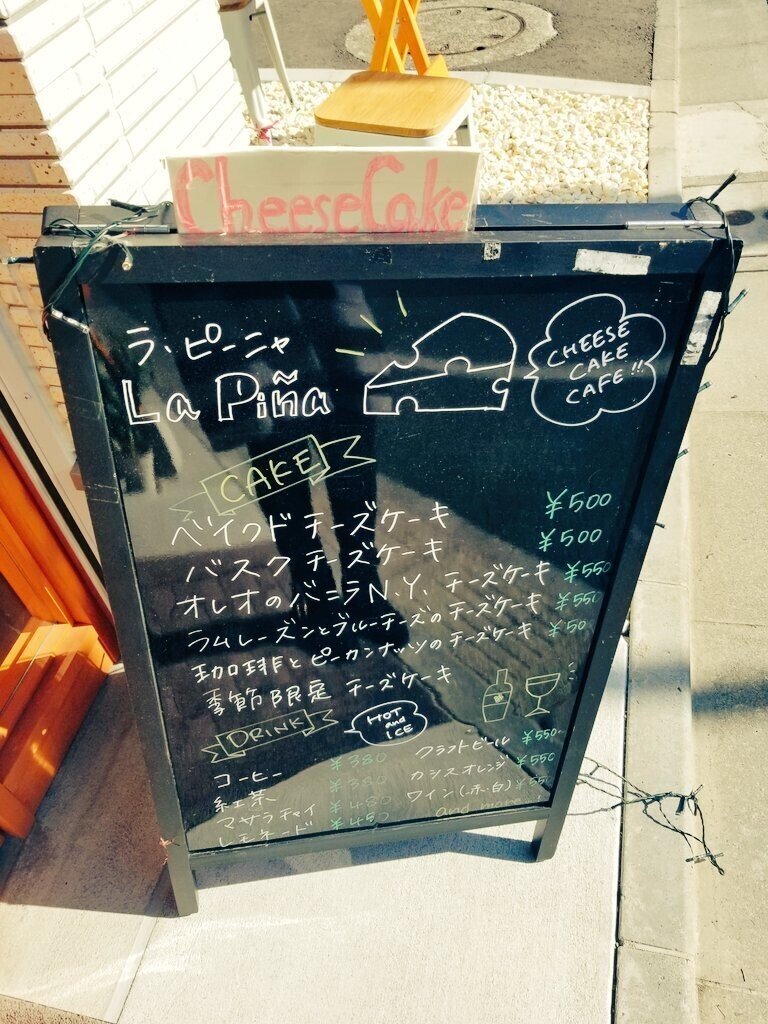 CheeseCake
ラ・ピーニャ
La Piña
CHEESE
CAKE
CAFE!!
CAKE
ベイクド チーズケーキ ¥500
バスク チーズケーキ ¥500
オレオのバニラN.Y. チーズケーキ ¥550
ラムレーズンとブルーチーズのチーズケーキ ¥550
珈琲とピーカンナッツのチーズケーキ
季節限定 チーズケーキ
DRINK
HOT
and
ICE
コーヒー ¥380
紅茶 ¥380
マサラチャイ ¥480
レモネード ¥450
クラフトビール ¥550~
カシスオレンジ ¥550
ワイン(赤・白) ¥550
and more